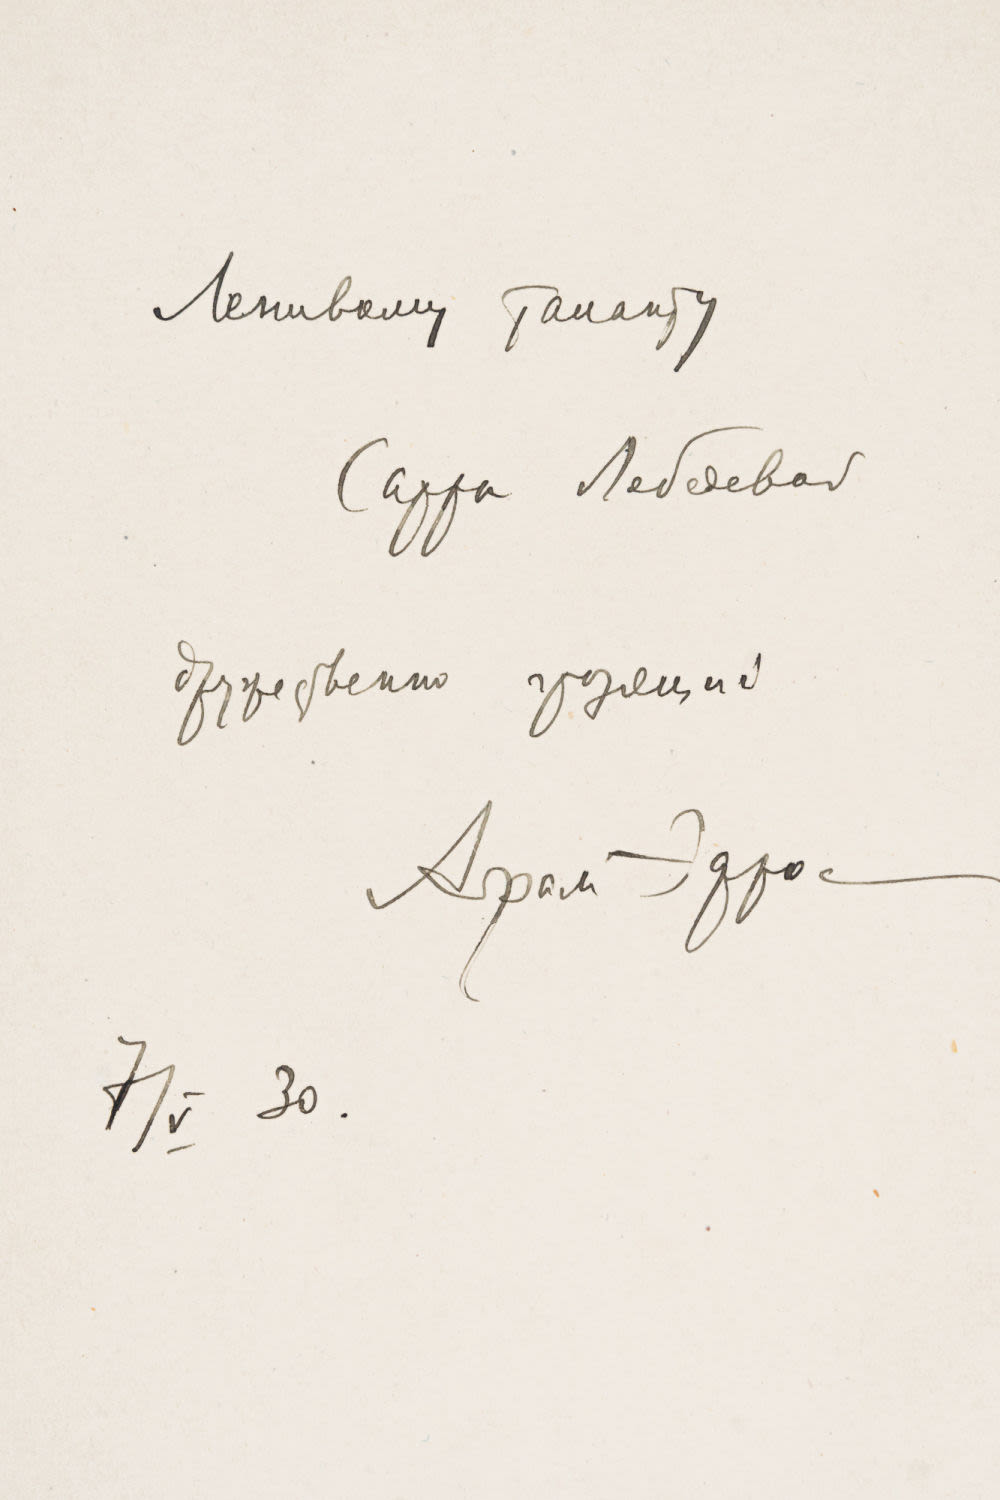 Ленивому таланту
Сарра Лебедевой
дружественно грозящий
Абрам Эфрос
7/V 30.